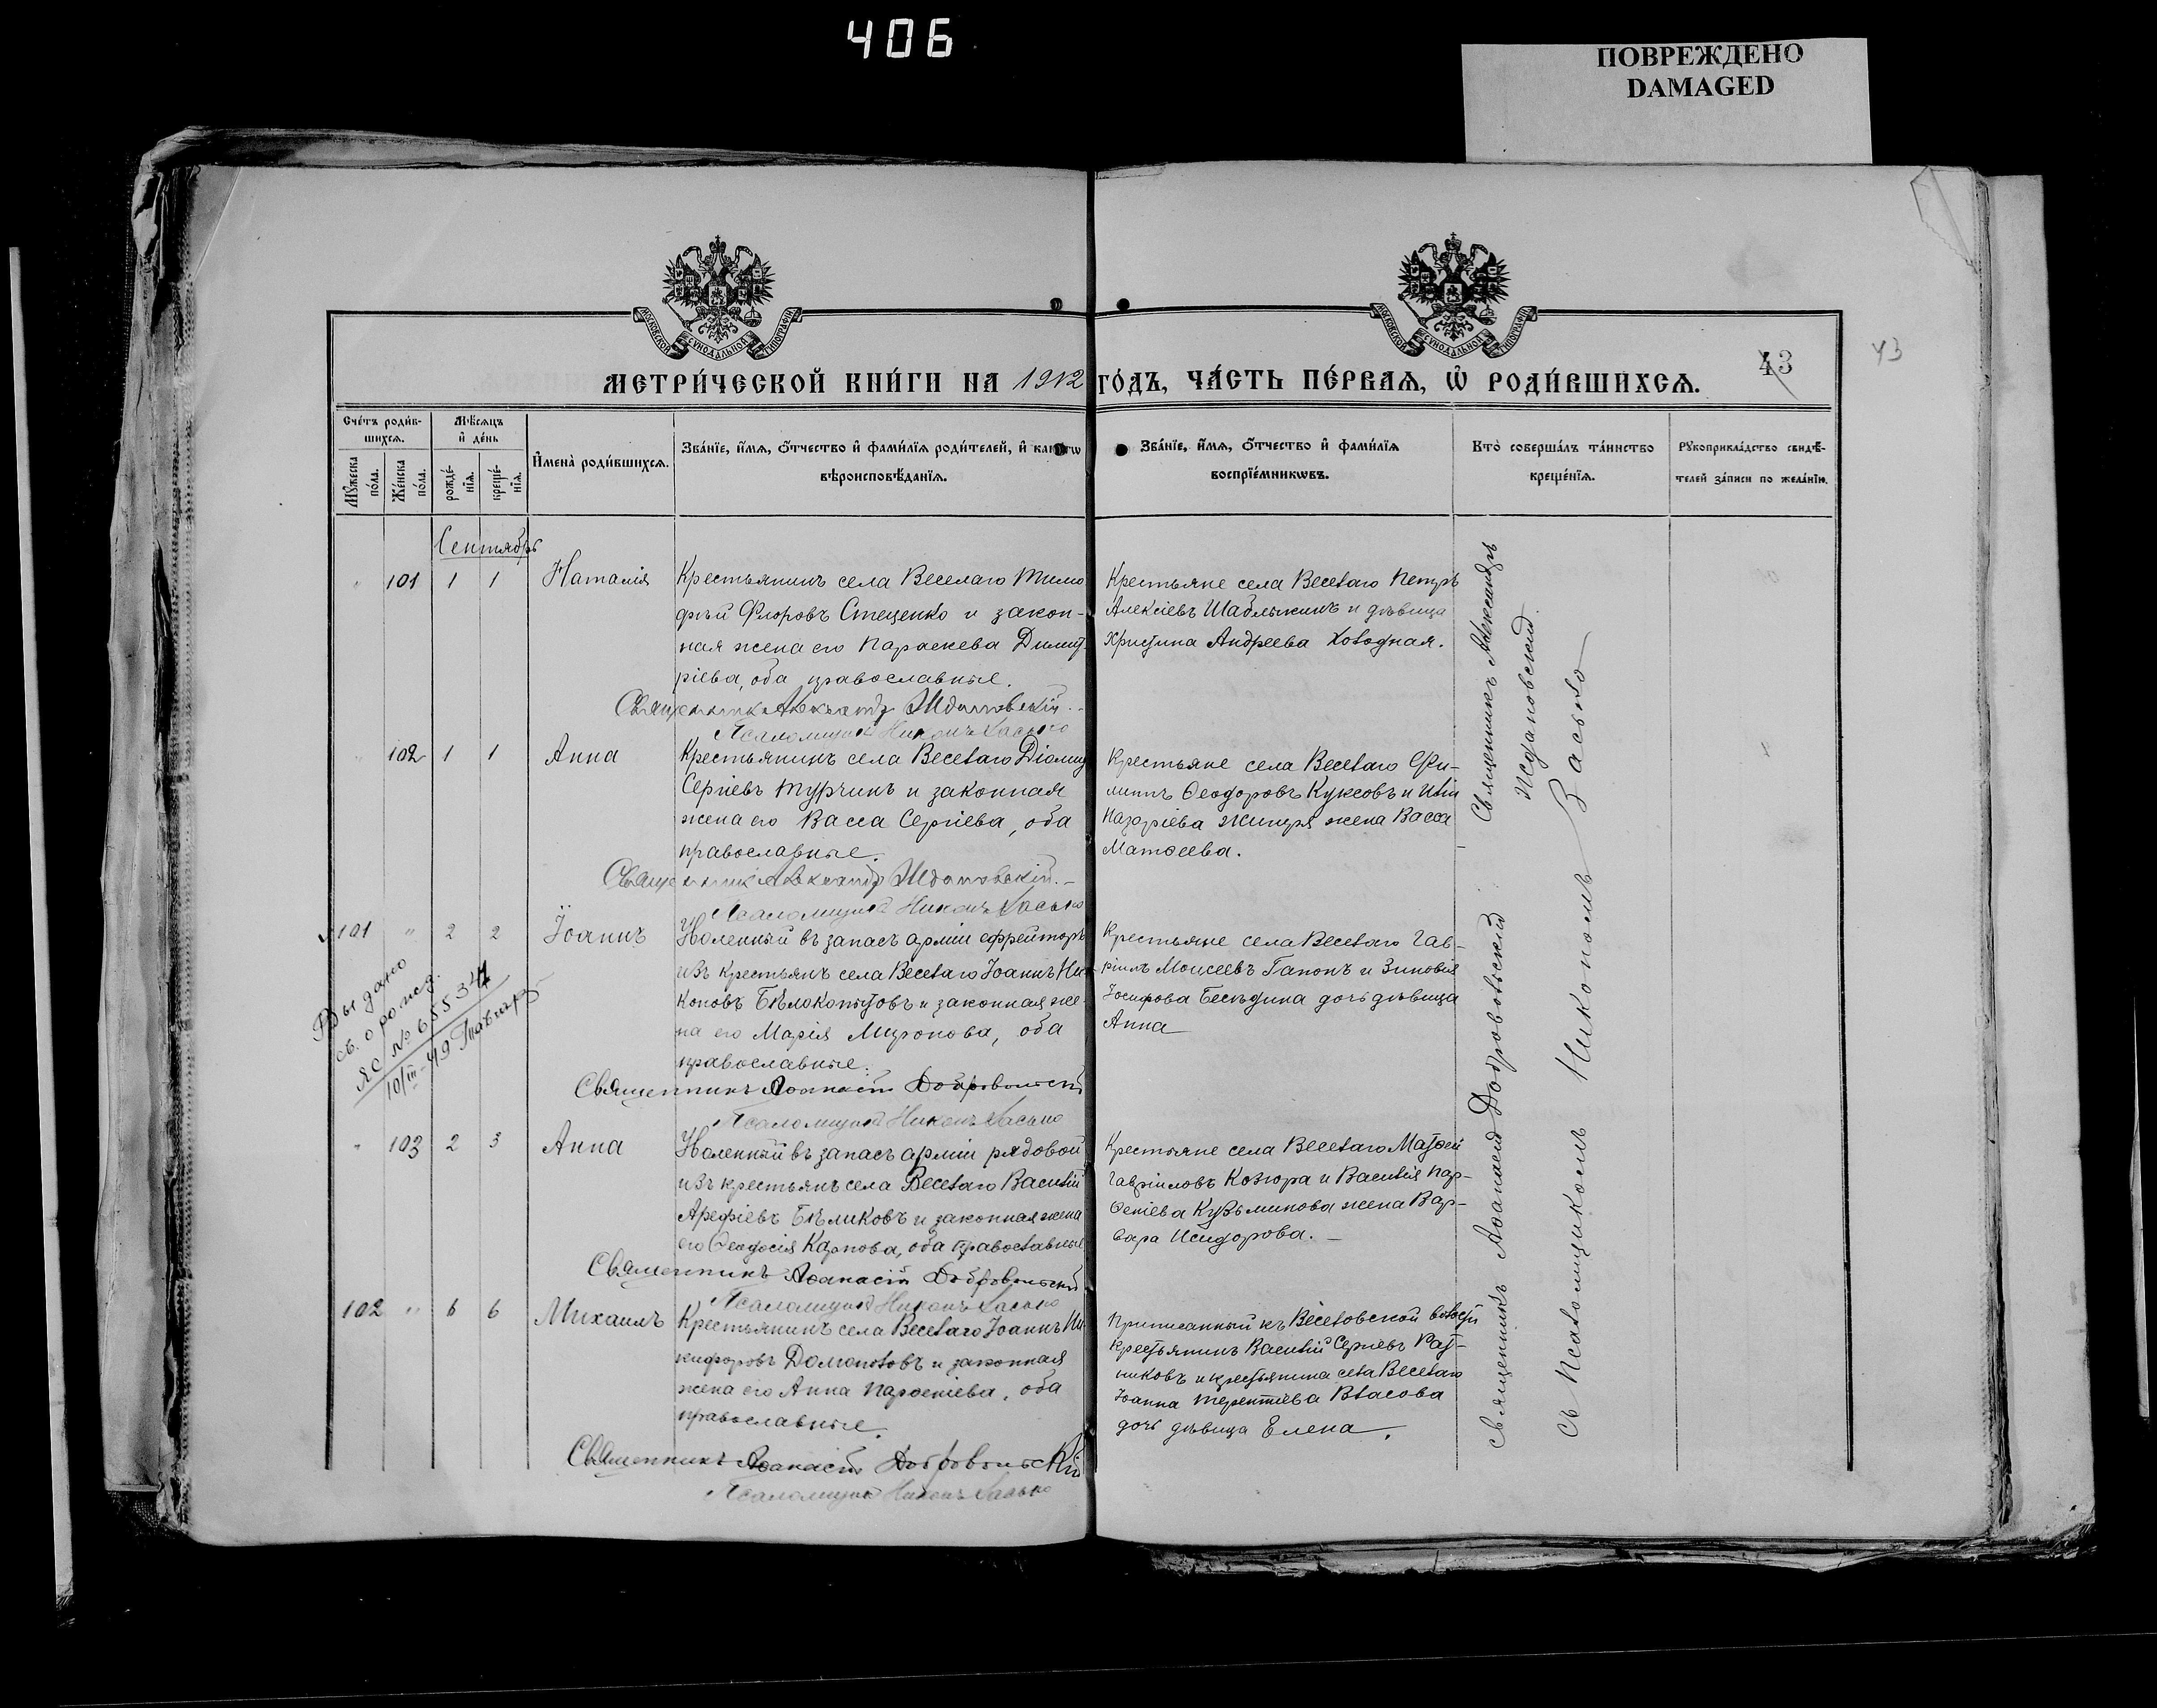 406
ПОВРЕЖДЕНО
DAMAGED
МОСКОВСКОЙ СѴНОДАЛЬНОЙ ТИПОГРАФІИ
МОСКОВСКОЙ СѴНОДАЛЬНОЙ ТИПОГРАФІИ
43
43
МЕТРИ́ЧЕСКОЙ КНИ́ГИ НА 1912 ГО́ДЪ, ЧА́СТЬ ПЕ́РВАЯ, Ѡ҆ РОДИ́ВШИХСЯ.
Сче́тъ роди́в-
шихся.
Мѣ́сяцъ
и҆ де́нь
Мꙋ́жеска по́ла.
Же́нска по́ла.
рожде́-нїя.
креще́-нїя.
И҆мена̀ роди́вшихся.
Зва́нїе, и҆́мя, ѻ҆́тчество и҆ фами́лїя роди́телей, и҆ како́гѡ
вѣроисповѣ́данїя.
Зва́нїе, и҆́мя, ѻ҆́тчество и҆ фами́лїя
воспрїе́мникѡвъ.
Кто̀ соверша́лъ та́инство
креще́нїя.
Рꙋкоприкла́дство свидѣ́-
телей за́писи по жела́нїю.
Сентябрь
" 101 1 1 Наталія
Крестьянинъ села Веселаго Тимо
фей Флоровъ Стеценко и закон-
ная жена его Параскева Димит-
ріева, оба православные.
Священникъ Александръ Ждановскій.
Псаломщикъ Никонъ Засько
Крестьяне села Веселаго Петръ
Алексіевъ Шаблыкинъ и дѣвица
Христина Андреева Холодная.
" 102 1 1 Анна
Крестьянинъ села Веселаго Діомид
Сергіевъ Турчинъ и законная
жена его Васса Сергіева, оба
православные.
Священникъ Александръ Ждановскій.
Псаломщикъ Никонъ Засько
Крестьяне села Веселаго Фи-
липпъ Ѳеодоровъ Куксовъ и Иліи
Назаріева жена Васса
Матѳеева.
101 " 2 2 Іоаннъ
Уволенный въ запасъ арміи ефрейторъ
изъ крестьянъ села Веселаго Іоаннъ Ни-
коновъ Бѣлокопытовъ и законная же-
на его Марія Миронова, оба
православные.
Священникъ Аѳанасій Добровольскій
Псаломщикъ Никонъ Засько
Крестьяне села Веселаго Гав-
ріилъ Моисеевъ Гапонъ и Зиновія
Іосифова Бесѣдина дочь дѣвица
Анна
Выдано
св. о рожд.
ЯС № 655344
10/III-49
" 103 2 3 Анна
Уволенный въ запасъ арміи рядовой
изъ крестьянъ села Веселаго Василій
Арефіевъ Бѣликовъ и законная жена
его Ѳеодосія Карпова, оба православные
Священникъ Аѳанасій Добровольскій
Псаломщикъ Никонъ Засько
Крестьяне села Веселаго Матѳей
Гавріиловъ Козюра и Василія Пар-
ѳеніева Кузьминова жена Вар-
вара Исидорова.
102 " 6 6 Михаилъ
Крестьянинъ села Веселаго Іоаннъ Ни-
кифоровъ Домоновъ и законная
жена его Анна Парѳеніева, оба
православные.
Священникъ Аѳанасій Добровольскій
Псаломщикъ Никонъ Засько
Приписанный къ Веселовской волости
крестьянинъ Василій Сергіевъ Рат-
никовъ и крестьянина села Веселаго
Іоанна Терентіева Власова
дочь дѣвица Елена.
Священникъ Александръ
Ждановскій
Священникъ Аѳанасій Добровольскій
съ Псаломщикомъ Никономъ Засько